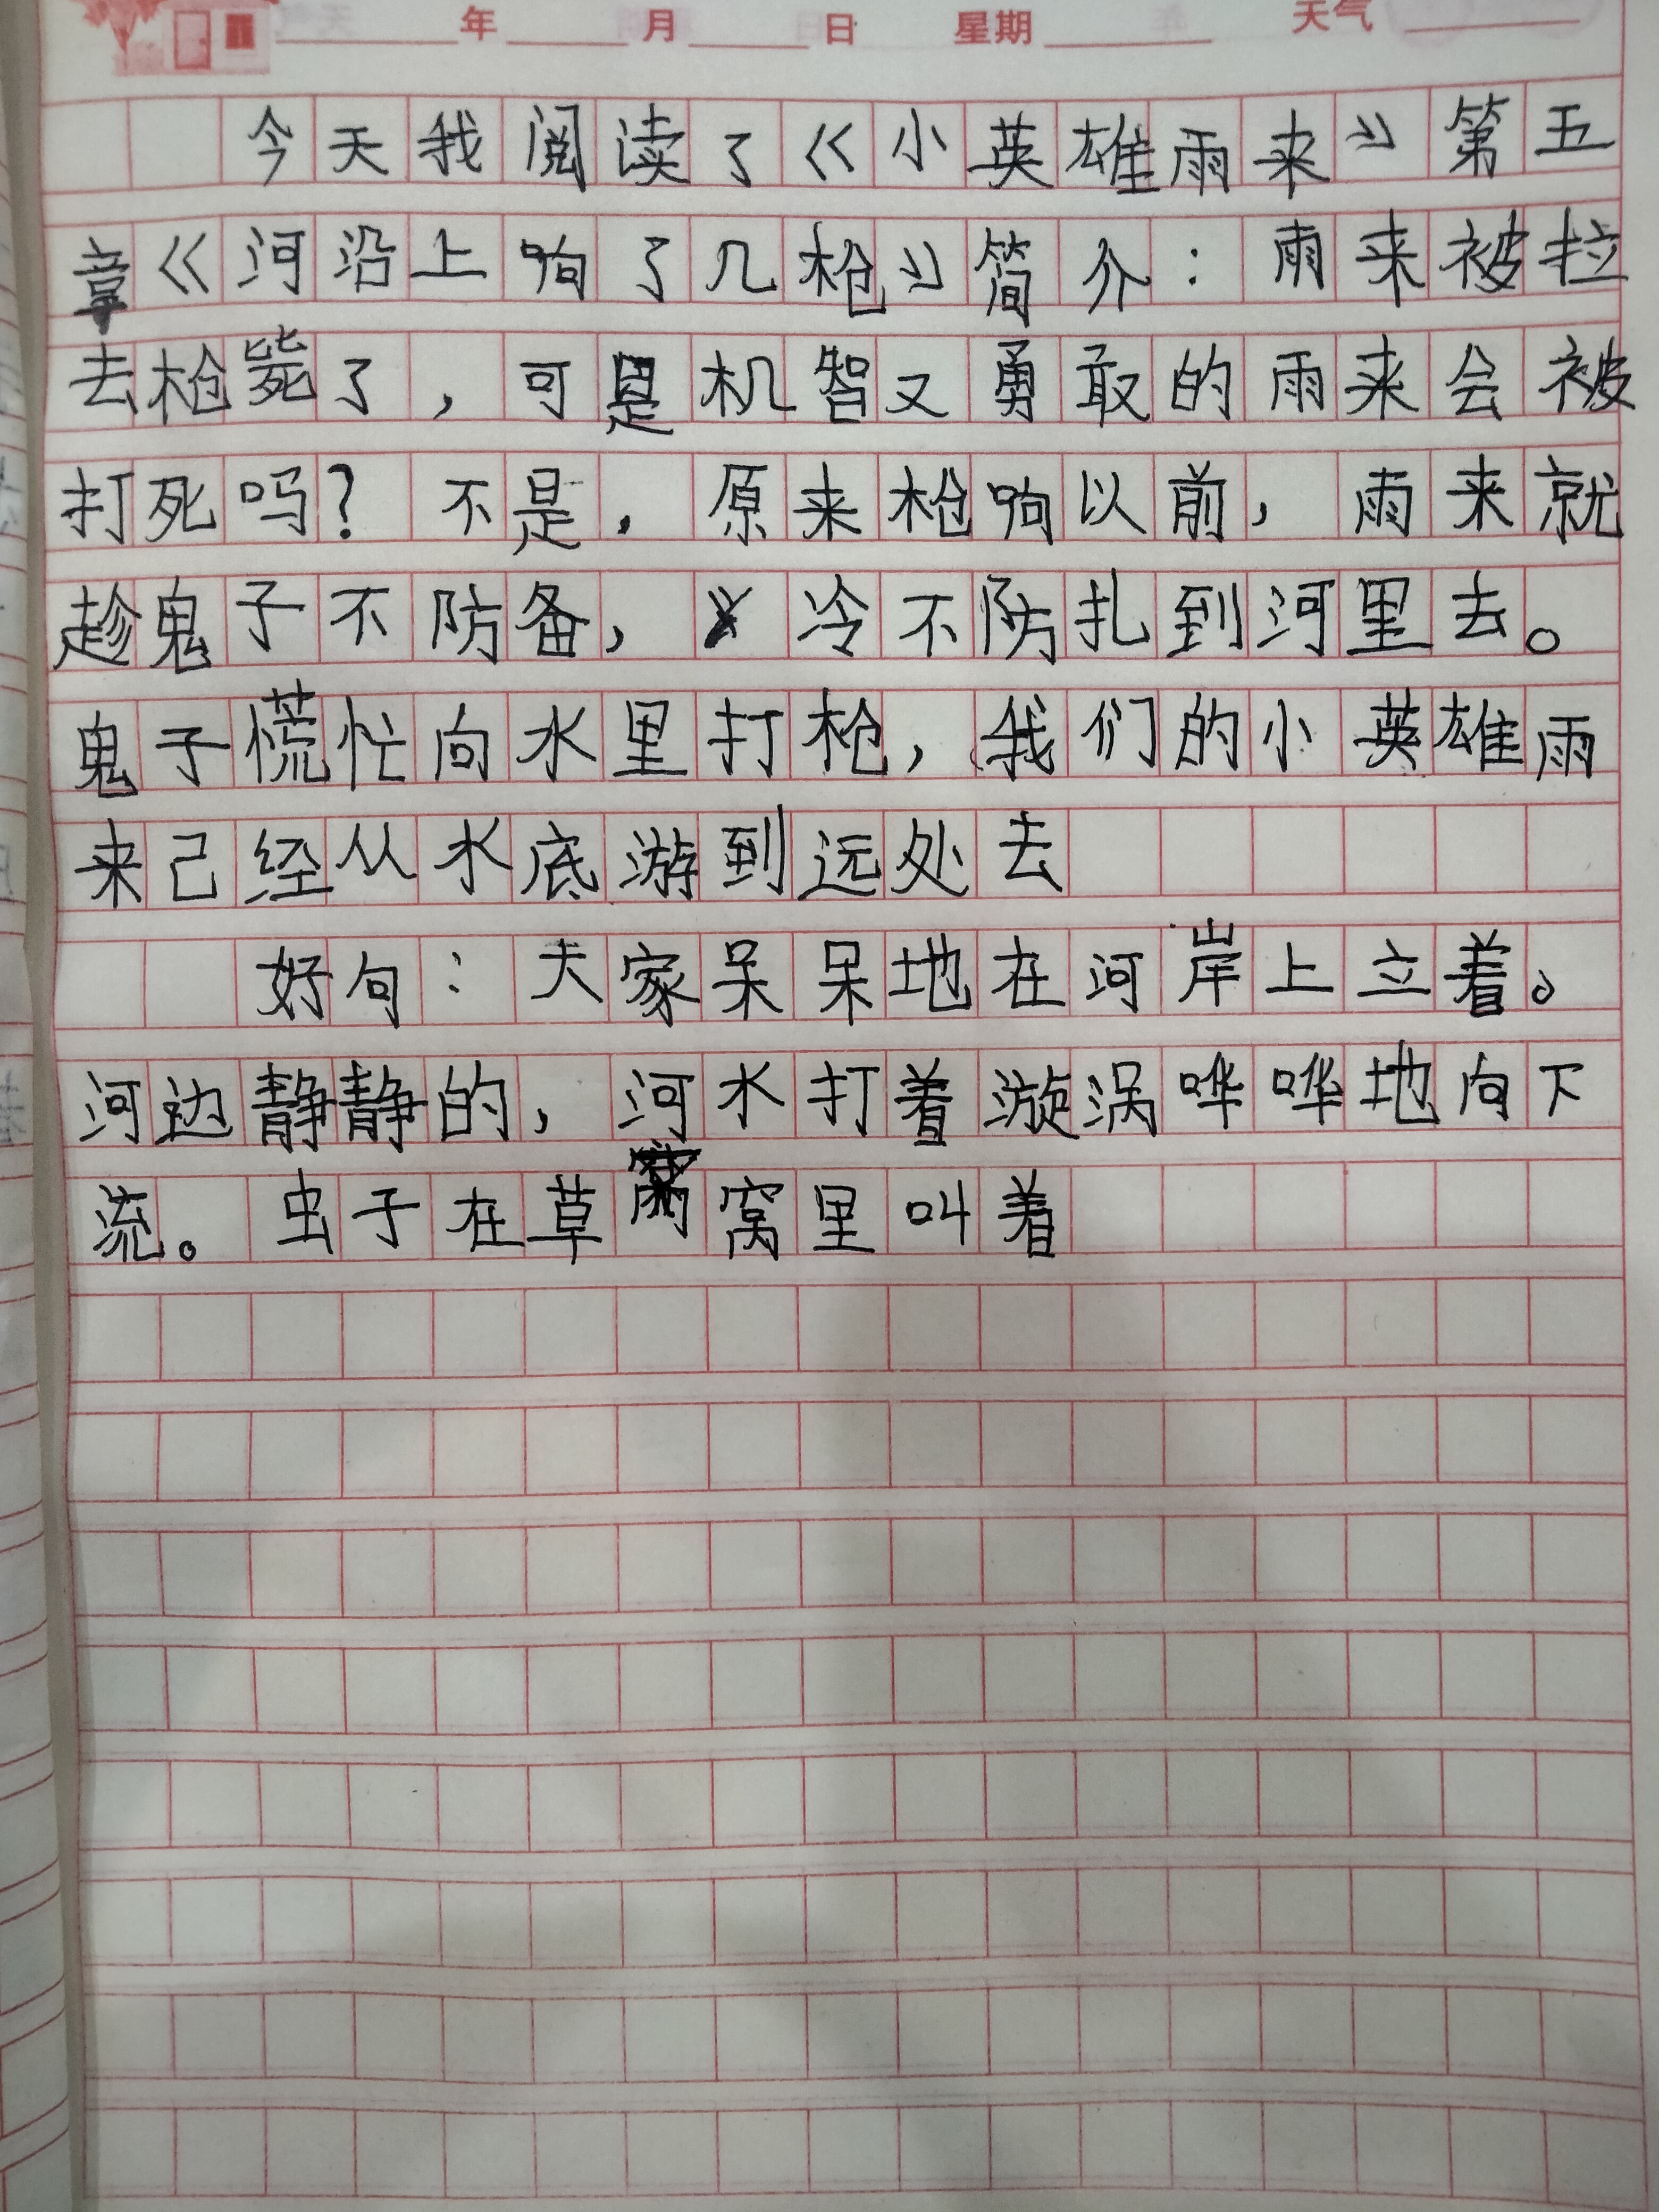 年 月 日 星期 天气
今天我阅读了《小英雄雨来》第五
章《河沿上响了几枪》简介：雨来被拉
去枪毙了，可是机智又勇敢的雨来会被
打死吗？不是，原来枪响以前，雨来就
趁鬼子不防备，冷不防扎到河里去。
鬼子慌忙向水里打枪，我们的小英雄雨
来己经从水底游到远处去
好句：大家呆呆地在河岸上立着。
河边静静的，河水打着漩涡哗哗地向下
流。虫子在草窝里叫着